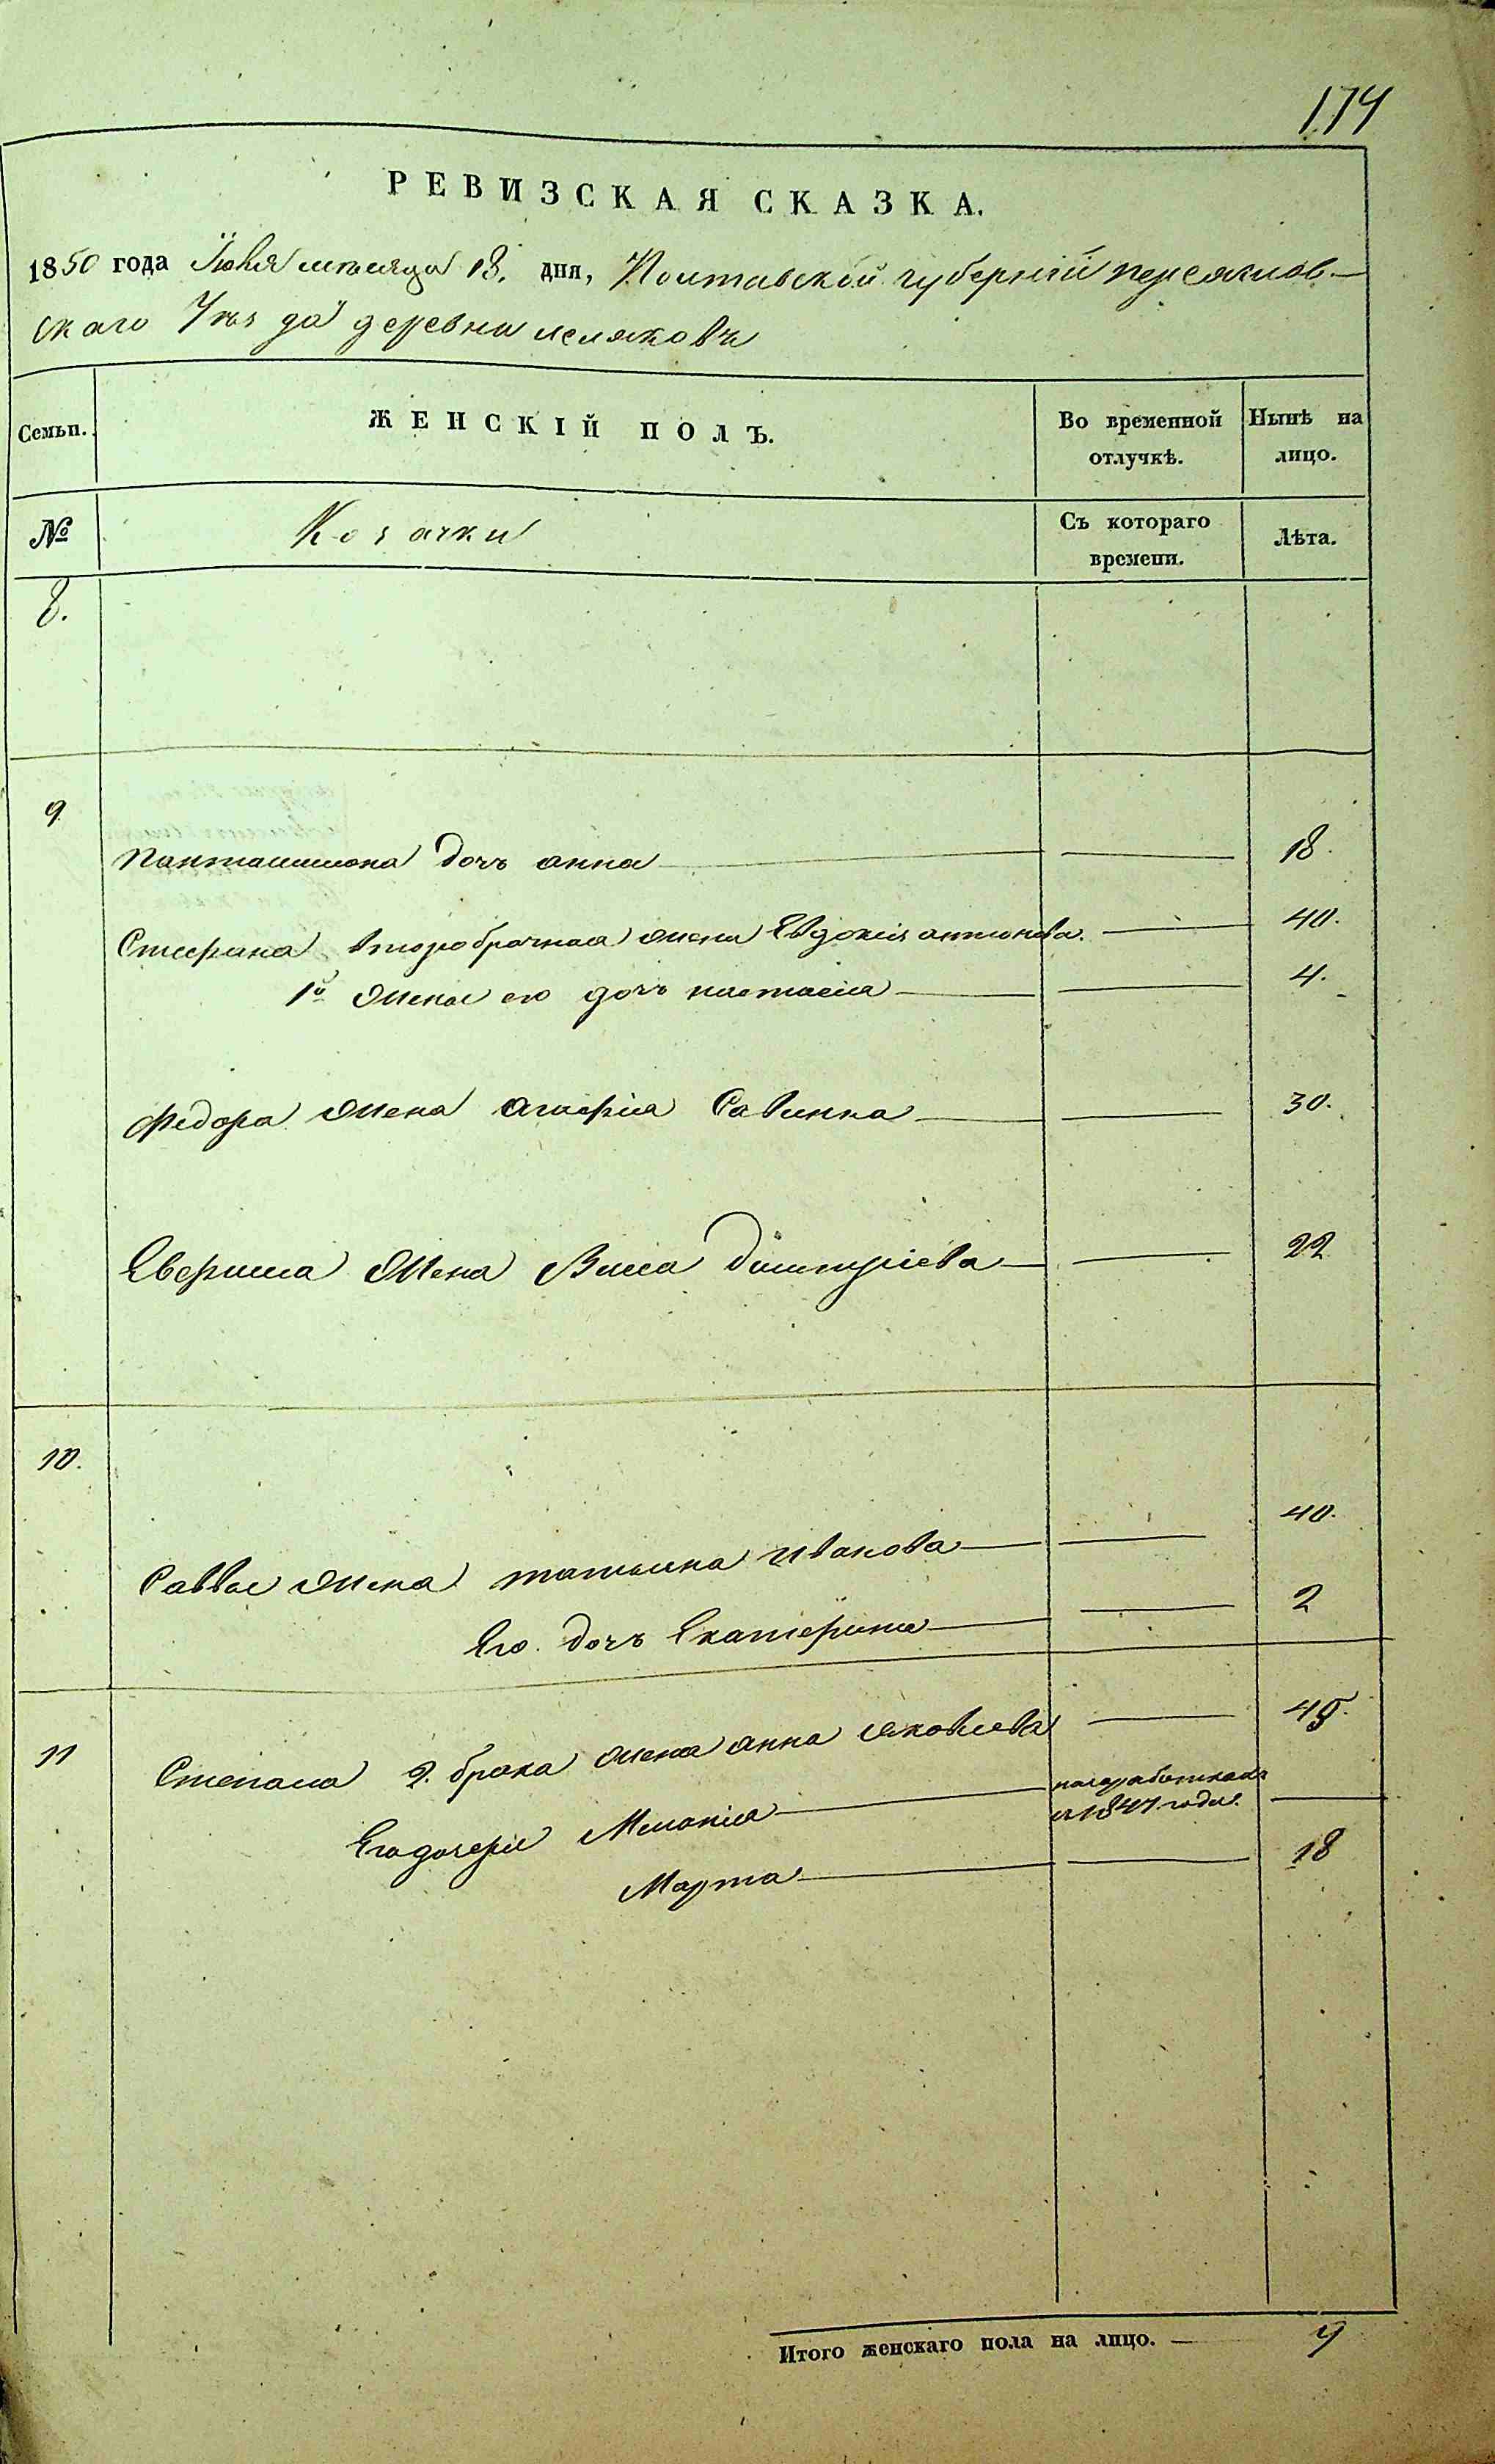 174
РЕВИЗСКАЯ СКАЗКА.
1850 года Іюня мѣсяца 18. дня, Полтавской губерніи переяслов-
скаго Уѣзда деревни леляковъ
Семьи. ЖЕНСКІЙ ПОЛЪ. Во временной отлучкѣ. Нынѣ на лицо.
№ Козачки Съ котораго времени. Лѣта.
8.
9
Панталимона дочъ анна 18.
Стефана второбрачная жена Евдокія антонова. 40.
1й жены его дочъ настасия 4.
Федора жена агафія Савина 30.
жена Димитріева 22
10.
Саввы жена татьяна иванова 40.
Его дочъ Екатерина 2
11 Степана 2. брака жена анна яковлева 49.
Его дочери Меланія на заработках
с 1847 года.
Марта 18
Итого женскаго пола на лицо. — 9